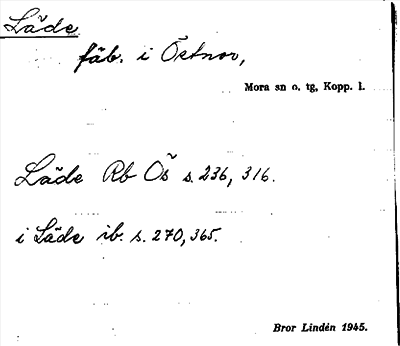 Läde
fäb. i Östnor,
Mora sn o. tg, Kopp. l.
Läde Rb Ös s. 236, 316.
i Läde ib. s. 270, 365.
Bror Lindén 1945.